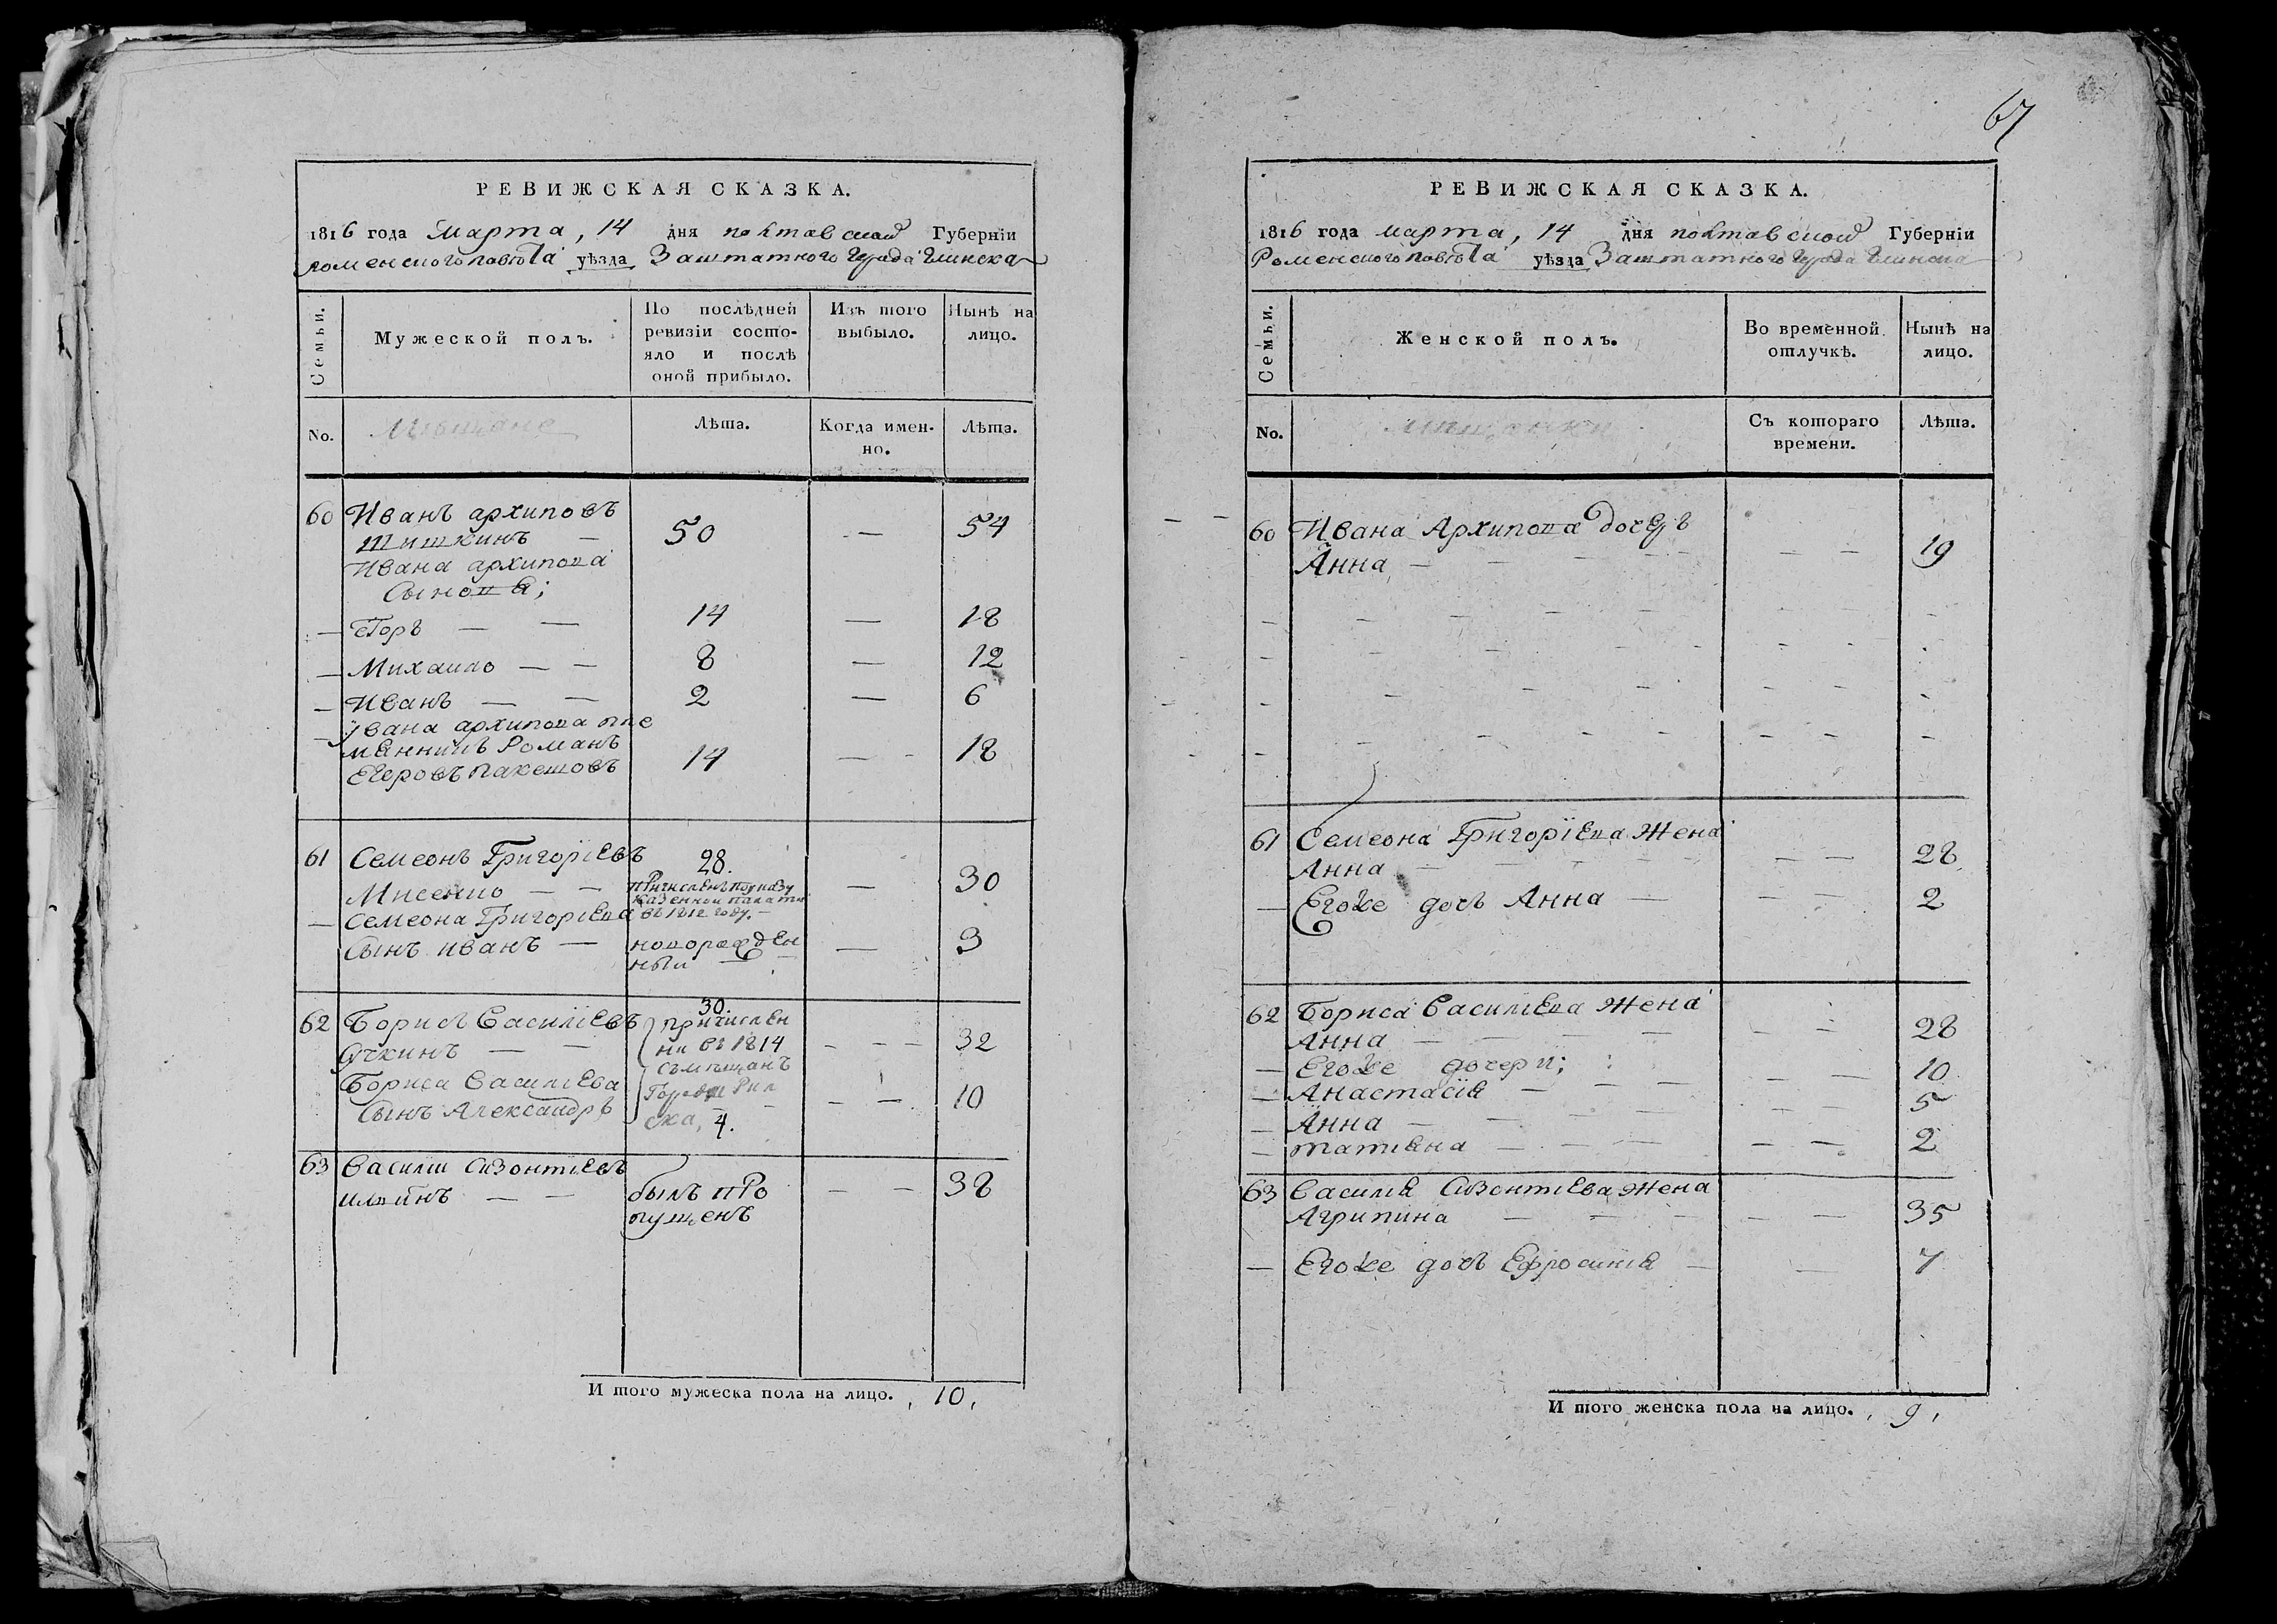 РЕВИЖСКАЯ СКАЗКА.
1816 года марта, 14 дня полтавской Губерніи
роменского повѣта уѣзда Заштатного города Глинска
Семьи.
Мужеской полъ.
По послѣдней
ревизіи состо-
яло и послѣ
оной прибыло.
Изъ того
выбыло.
Нынѣ на
лицо.
No.
мѣщане
Лѣта.
Когда имен-
но.
Лѣта.
60 Иванъ архиповъ
шишкинъ — 50 — 54
Ивана архипова
Сынова;
— Егоръ — — 14 — 18
— Михаило — — 8 — 12
— Иванъ — — 2 — 6
— Ивана архипова пле
мянникъ Романъ
Егеровъ 14 — 18
61 Семеонъ Григоріевъ 28.
Мисенко — — причисленъ поуказу — 30
казенной палаты
— Семеона Григоріева въ 1812 году. —
Сынъ иванъ — новорожден — 3
ный —
62 Борисъ Василіевъ 30.
Сучкинъ — — причислен
ни въ 1814 — — — 32
съмещанъ
Бориса Василіева города
Сынъ Александръ — — — 10
ска, 4.
63 Василіи Сизонтіевъ
— — былъ про — — 38
пущенъ
И того мужеска пола на лицо. , 10,
67
РЕВИЖСКАЯ СКАЗКА.
1816 года марта, 14 дня полтавской Губерніи
Роменского повѣта уѣзда Заштатного города Глинска
Семьи.
Женской полъ.
Во временной
отлучкѣ.
Нынѣ на
лицо.
No.
мещанки
Съ котораго
времени.
Лѣта.
60 Ивана Архипова дочерь
Анна — — — 19
61 Семеона Григоріева Жена
Анна — — — 28
— Егоже дочь Анна — — — 2
62 Бориса Василіева Жена
Анна — — — 28
— Егоже дочери;
— Анастасія — — — 10
— Анна — — — 5
— татіяна — — — 2
63 Василія Сизонтіева Жена
Агрипина — — — 35
— Егоже дочь Ефросинія — — 7
И того женска пола на лицо. , 9,